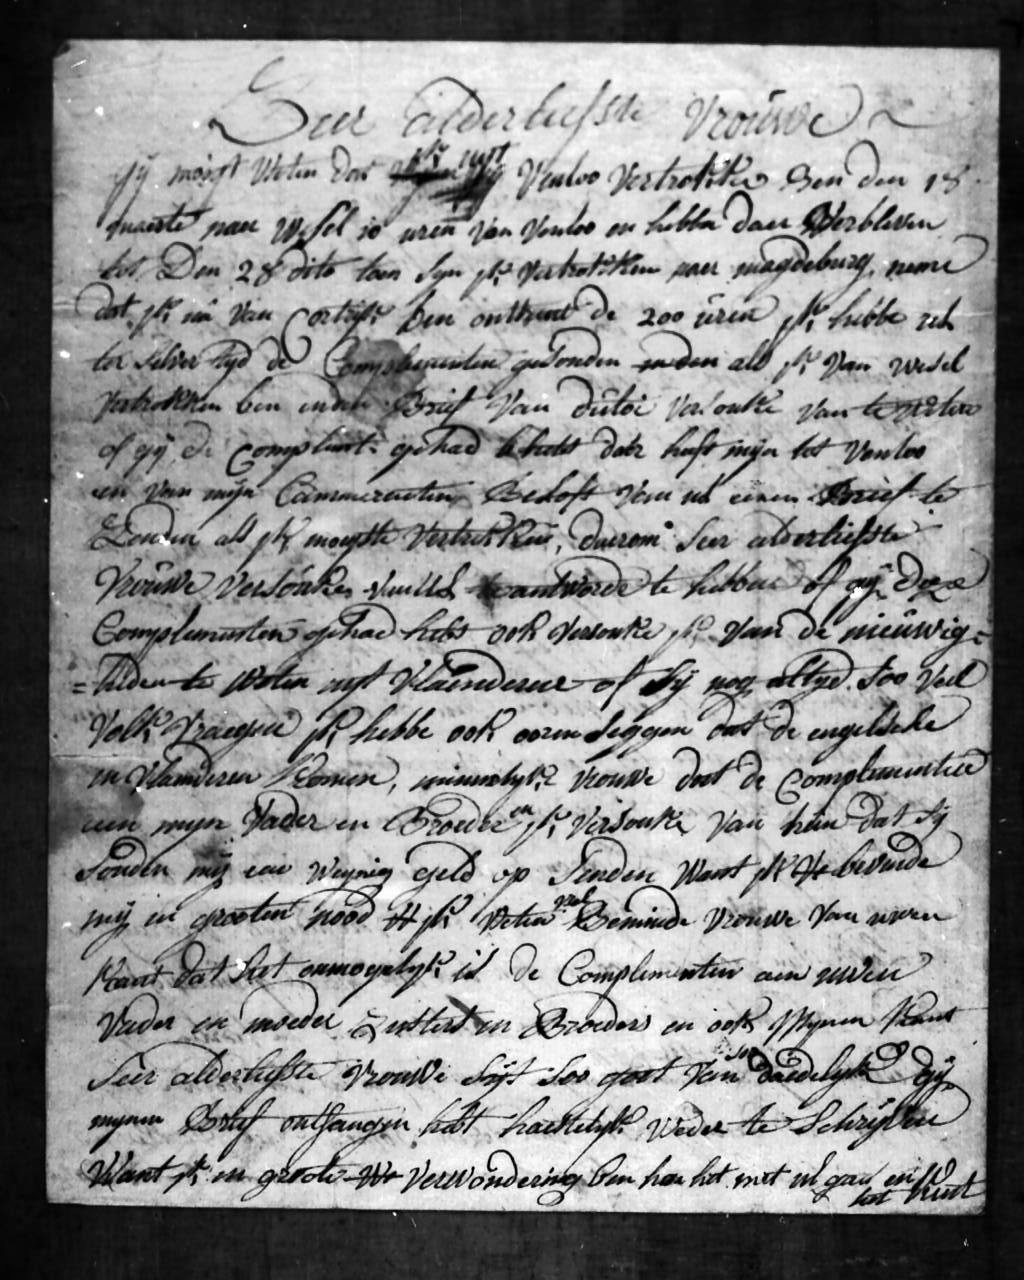 Seer alderliefste Vrouwe
Gij moogt Weten dat ik uijt Venloo Vertrokken Ben den 18
maerte naer Wesel 10 uren Van Venloo en hebbe daer Verbleven
tot Den 28 dito toen Syn ik Vertrokken naer magdeburg, neme
dat ik nu Van Cortryk ben ontrent de 200 uren ik hebbe ul
ter selver tyd de Complimenten gesonden als ik Van Wesel
Vertrokken ben Brief Van Versouke Van te weten
of gij de Complimt gehad hebt heeft mijn tot Venloo
en Van mijn Cammeraeten Beloft Van ul eenen Brief te
Zenden als ik moeste Vertrekken, daerom Seer alderliefste
Vrouwe Versouke antworde te hebben of gij deze
Complimenten gehad hebt ook Versouke ik Van de nieuwig=
=heden te Weten uyt Vlaenderen of Sij nog altyd Soo Veel
Volk Vraegen ik hebbe ook ooren Seggen dat de engelsche
in Vlaenderen Komen, minnelyke Vrouwe doet de Complimenten
aen mijn Vader en Broeder en ik Versouke Van hun dat Sij
Souden mij een Weynig geld op Senden Want ik bevinde
mij in grooten nood ik Weten wel Beminde Vrouwe Van uwen
Kant dat het onmogelyk is de Complimenten aen uwen
Vader en moeder Zusters en Broeders en ook Mynen Kant
Seer alderliefste Vrouwe Sijt Soo goet Van Soo daedelyk gij
mynen Brief ontfangen hebt haestelyk Weder te Schryven
Want ik in groote Verwondering ben hoe het met ul gaet en
tot